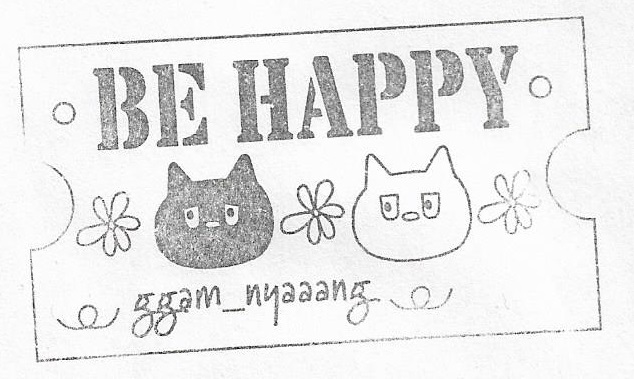 BE HAPPY
ggam_nyaaang